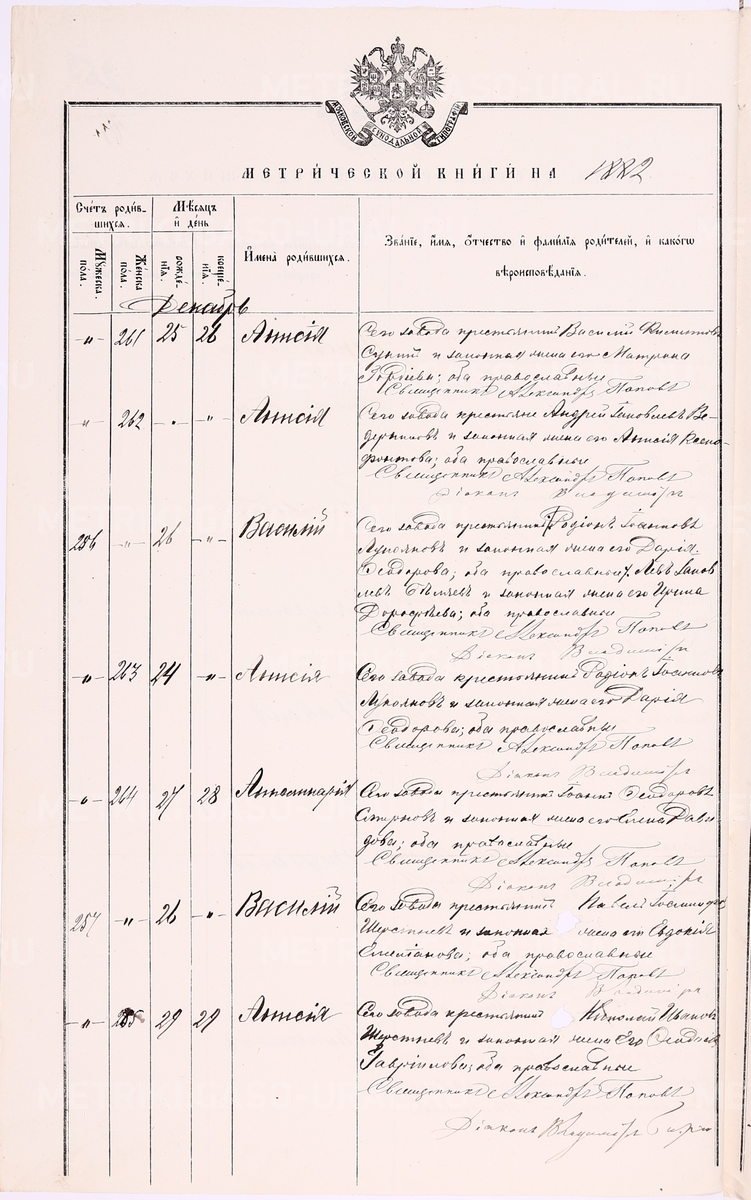 МОСКОВСКОЙ СѴНОДАЛЬНОЙ ТИПОГРАФІИ
МЕТРИ́ЧЕСКОЙ КНИ́ГИ НА 1882
Сче́тъ роди́в-
шихся.
Мѣ́сяцъ
и́ де́нь
Му́жеска
по́ла.
Же́нска
по́ла.
рожде́-
нія.
креще́-
нія.
И҆мена̀ роди́вшихся.
Зва́ніе, и҆́мя, ѻ҆́тчество и҆ фами́лія роди́телей, и҆ како́гѡ
вѣроисповѣ́данія.
Декабрь
" 261 25 26 Анисія
Сего завода крестьянинъ Василій
и законная жена его Матрона
оба православные
Священникъ Александръ Поповъ
" 262 " " Анисія
Сего завода крестьяне Андрей Іаковлевъ Ве-
дерниковъ и законная жена его Анисія Ксено-
фонтова; оба православные
Священникъ Александръ Поповъ
Діаконъ Владиміръ
256 " 26 " Василій
Сего завода крестьянинъ Родіонъ Іоанновъ
Лупановъ и законная жена его Дарія
Ѳеодорова; оба православные. Левъ Іаков
левъ и законная жена его Ирина
Дороѳѣева; оба православные
Священникъ Александръ Поповъ
Діаконъ Владиміръ
" 263 24 " Анисія
Сего завода крестьянинъ Родіонъ Іоанновъ
Лупановъ и законная жена его Дарія
Ѳеодорова; оба православные
Священникъ Александръ Поповъ
Діаконъ Владиміръ
" 264 27 28 Аполинарія
Сего завода крестьянинъ Іоаннъ Ѳеодоровъ
Смирновъ и законная жена его Елена Дави-
дова; оба православные
Священникъ Александръ Поповъ
Діаконъ Владиміръ
257 " 26 " Василій
Сего завода крестьянинъ Павелъ
Шерстневъ и законная жена его Евдокія
оба православные
Священникъ Александръ Поповъ
Діаконъ Владиміръ
" 265 29 29 Анисія
Сего завода крестьянинъ Николай Ивановъ
Шерстневъ и законная жена его
Гавріилова; оба православные
Священникъ Александръ Поповъ
Діаконъ Владиміръ